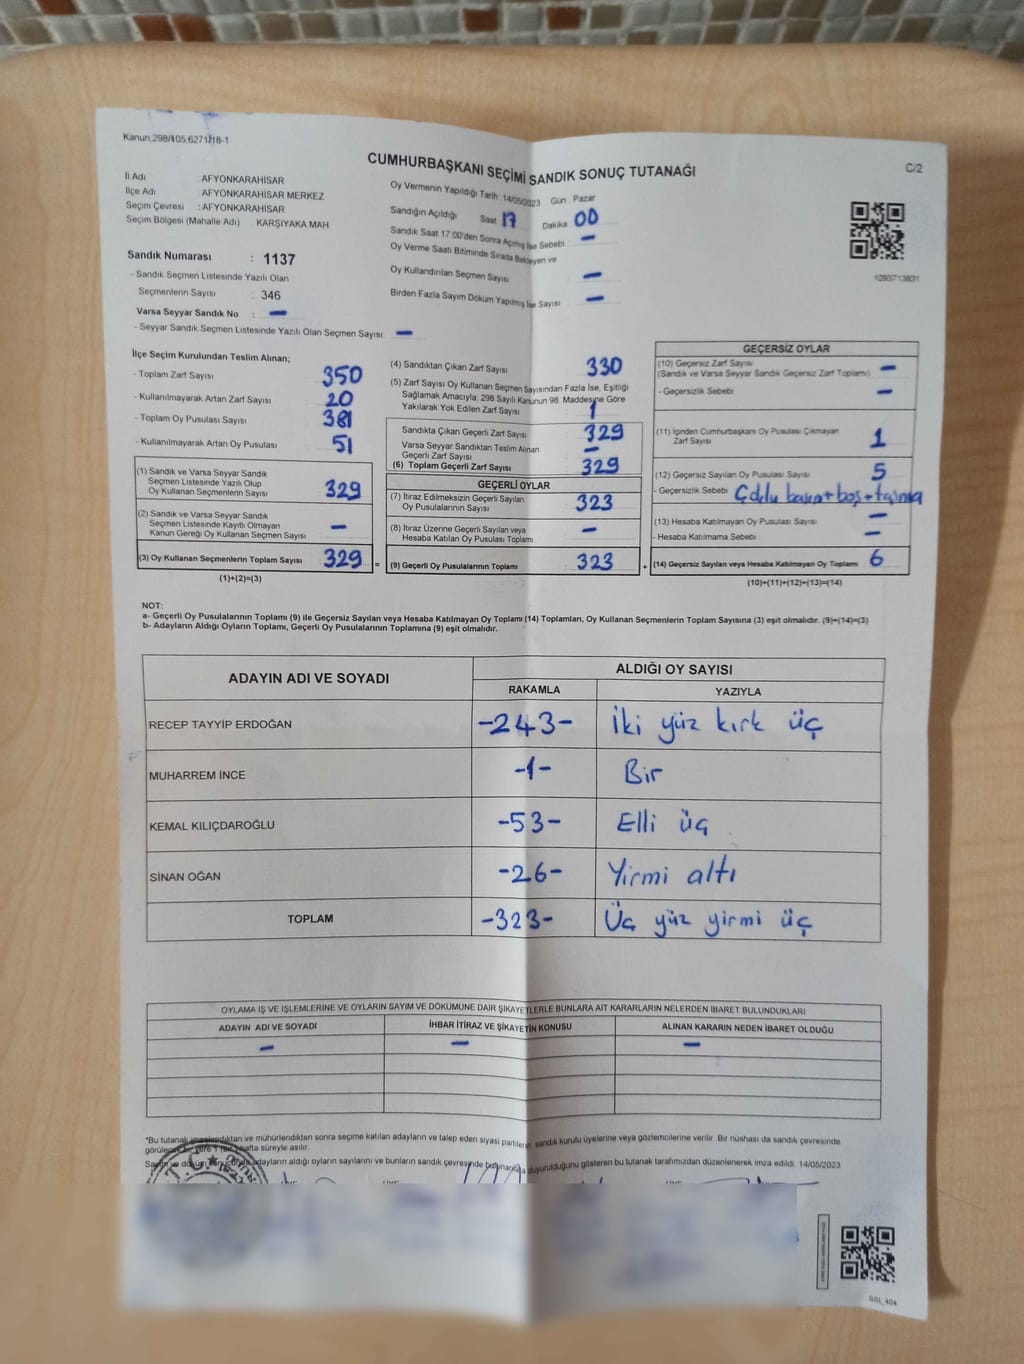 Kanun.298/105,6271/18-1
CUMHURBAŞKANI SEÇİMİ SANDIK SONUÇ TUTANAĞI
C/2
İl Adı AFYONKARAHİSAR
İlçe Adı AFYONKARAHİSAR MERKEZ
Seçim Çevresi : AFYONKARAHİSAR
Seçim Bölgesi (Mahalle Adı) KARŞIYAKA MAH
Oy Vermenin Yapıldığı Tarih :14/05/2023 Gün : Pazar
Sandığın Açıldığı Saat 17 Dakika 00
Sandık Saat 17:00'den Sonra Açılmış İse Sebebi —
Oy Verme Saati Bitiminde Sırada Bekleyen ve
Oy Kullandırılan Seçmen Sayısı —
Birden Fazla Sayım Döküm Yapılmış İse Sayısı —
1093713831
Sandık Numarası : 1137
- Sandık Seçmen Listesinde Yazılı Olan
Seçmenlerin Sayısı : 346
Varsa Seyyar Sandık No : —
- Seyyar Sandık Seçmen Listesinde Yazılı Olan Seçmen Sayısı: —
İlçe Seçim Kurulundan Teslim Alınan;
- Toplam Zarf Sayısı 350
- Kullanılmayarak Artan Zarf Sayısı 20
- Toplam Oy Pusulası Sayısı 381
- Kullanılmayarak Artan Oy Pusulası 51
(1) Sandık ve Varsa Seyyar Sandık
Seçmen Listesinde Yazılı Olup
Oy Kullanan Seçmenlerin Sayısı 329
(2) Sandık ve Varsa Seyyar Sandık
Seçmen Listesinde Kayıtlı Olmayan
Kanun Gereği Oy Kullanan Seçmen Sayısı —
(3) Oy Kullanan Seçmenlerin Toplam Sayısı 329 =
(1)+(2)=(3)
(4) Sandıktan Çıkan Zarf Sayısı 330
(5) Zarf Sayısı Oy Kullanan Seçmen Sayısından Fazla İse, Eşitliği
Sağlamak Amacıyla, 298 Sayılı Kanunun 98. Maddesine Göre
Yakılarak Yok Edilen Zarf Sayısı 1
Sandıkta Çıkan Geçerli Zarf Sayısı 329
Varsa Seyyar Sandıktan Teslim Alınan
Geçerli Zarf Sayısı —
(6) Toplam Geçerli Zarf Sayısı 329
GEÇERLİ OYLAR
(7) İtiraz Edilmeksizin Geçerli Sayılan
Oy Pusulalarının Toplamı 323
(8) İtiraz Üzerine Geçerli Sayılan veya
Hesaba Katılan Oy Pusulası Toplamı —
(9) Geçerli Oy Pusulalarının Toplamı 323 +
GEÇERSİZ OYLAR
(10) Geçersiz Zarf Sayısı
(Sandık ve Varsa Seyyar Sandık Geçersiz Zarf Toplamı) —
- Geçersizlik Sebebi —
(11) İçinden Cumhurbaşkanı Oy Pusulası Çıkmayan
Zarf Sayısı 1
(12) Geçersiz Sayılan Oy Pusulası Sayısı 5
- Geçersizlik Sebebi Çoklu basım+boş+taşma
(13) Hesaba Katılmayan Oy Pusulası Sayısı —
- Hesaba Katılmama Sebebi —
(14) Geçersiz Sayılan veya Hesaba Katılmayan Oy Toplamı 6
(10)+(11)+(12)+(13)=(14)
NOT:
a- Geçerli Oy Pusulalarının Toplamı (9) ile Geçersiz Sayılan veya Hesaba Katılmayan Oy Toplamı (14) Toplamları, Oy Kullanan Seçmenlerin Toplam Sayısına (3) eşit olmalıdır. (9)+(14)=(3)
b- Adayların Aldığı Oyların Toplamı, Geçerli Oy Pusulalarının Toplamına (9) eşit olmalıdır.
ADAYIN ADI VE SOYADI ALDIĞI OY SAYISI
RAKAMLA YAZIYLA
RECEP TAYYİP ERDOĞAN -243- İki yüz kırk üç
MUHARREM İNCE -1- Bir
KEMAL KILIÇDAROĞLU -53- Elli üç
SİNAN OĞAN -26- Yirmi altı
TOPLAM -323- Üç yüz yirmi üç
OYLAMA İŞ VE İŞLEMLERİNE VE OYLARIN SAYIM VE DÖKÜMÜNE DAİR ŞİKAYETLERLE BUNLARA AİT KARARLARIN NELERDEN İBARET BULUNDUKLARI
ADAYIN ADI VE SOYADI İHBAR İTİRAZ VE ŞİKAYETİN KONUSU ALINAN KARARIN NEDEN İBARET OLDUĞU
— — —
*Bu tutanak imzalandıktan ve mühürlendikten sonra seçime katılan adayların ve talep eden siyasi partilerin sandık kurulu üyelerine veya gözlemcilerine verilir. Bir nüshası da sandık çevresinde
görülen bir yere 1 (bir) hafta süreyle asılır.
Sayım ve döküm adayların aldığı oyların sayılarını ve bunların sandık çevresinde duyurulduğunu gösteren bu tutanak tarafımızdan düzenlenerek imza edildi. 14/05/2023
SSI_404